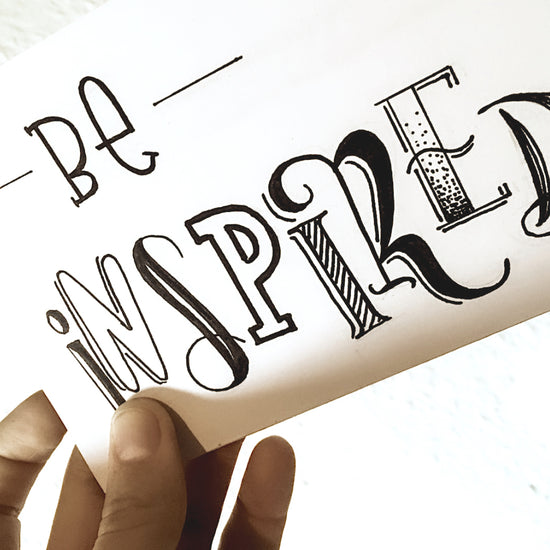 Be
iNSPIRED